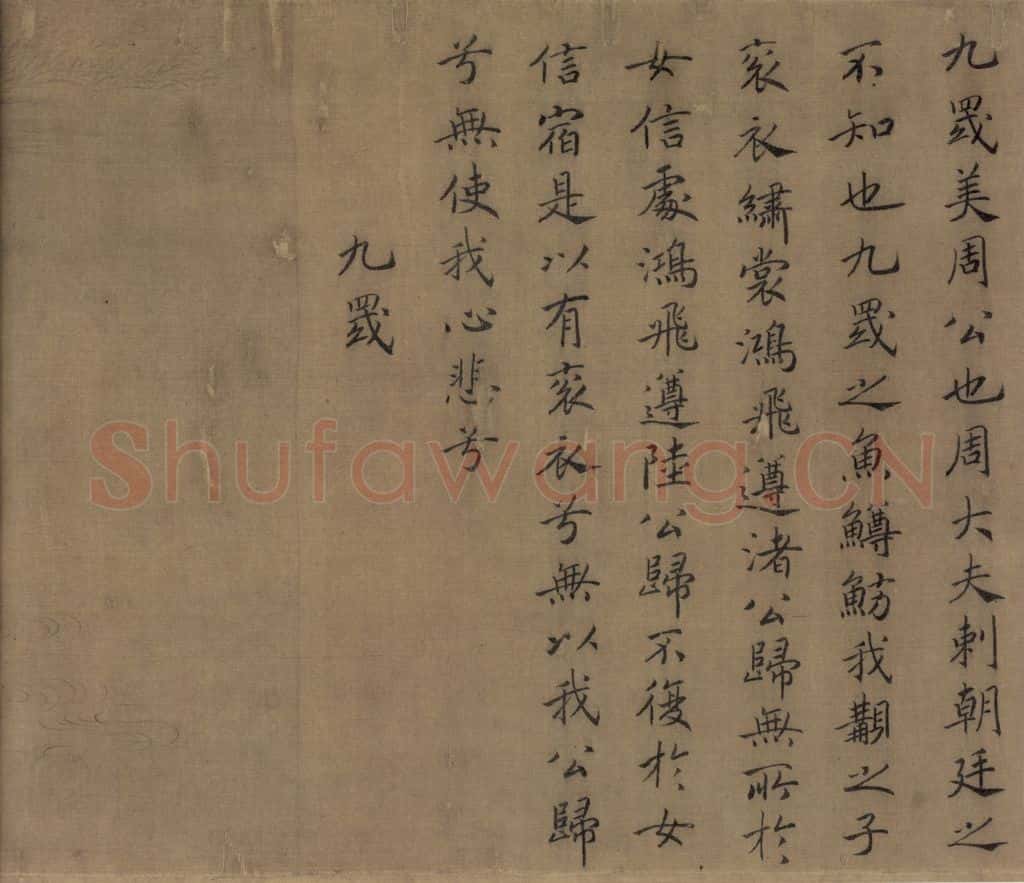 九罭美周公也周大夫刺朝廷之
不知也九罭之魚鱒魴我覯之子
衮衣繡裳鴻飛遵渚公歸無所於
女信處鴻飛遵陸公歸不復於女
信宿是以有衮衣兮無以我公歸
兮無使我心悲兮
九罭
Shufawang.CN